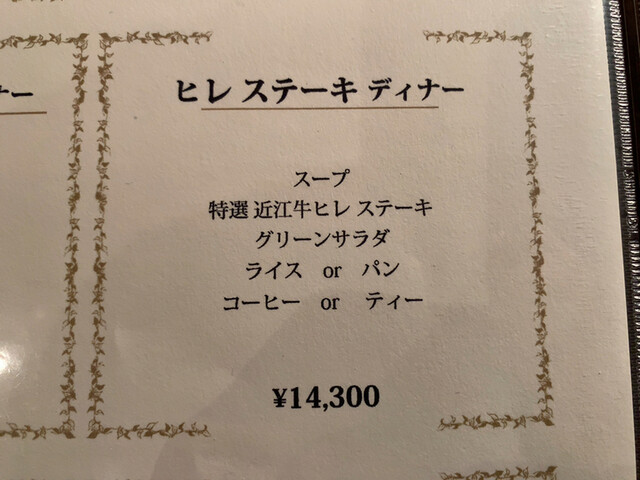 ナー
ヒレ ステーキ ディナー
スープ
特選 近江牛ヒレ ステーキ
グリーンサラダ
ライス or パン
コーヒー or ティー
¥14,300